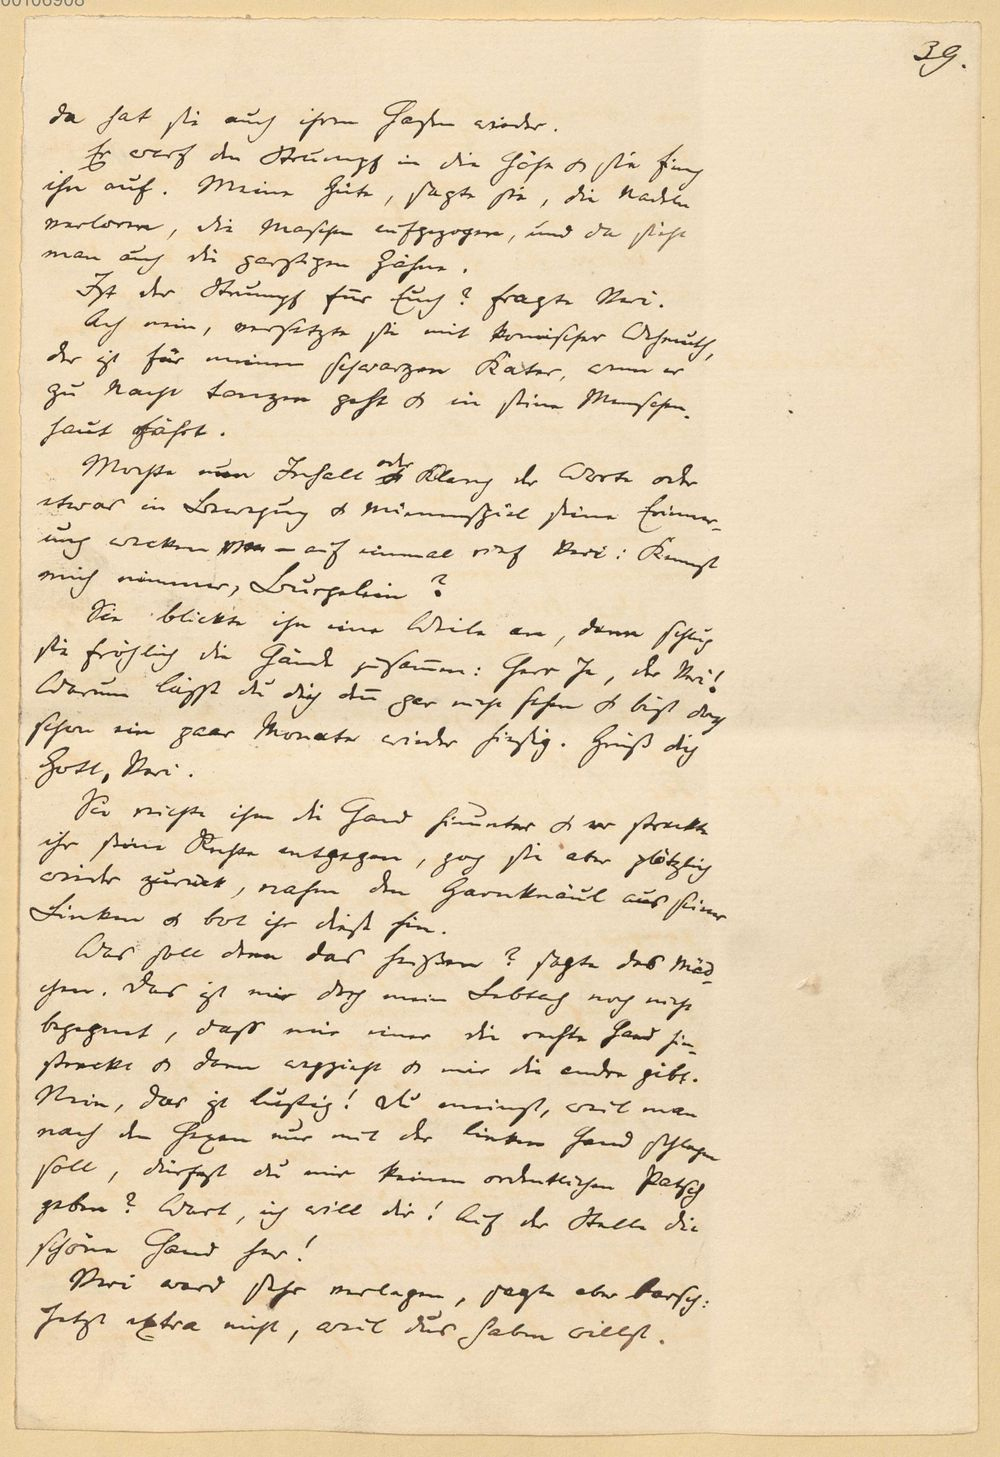 00106908
39.
da hat sie auch ihren Hasen wieder.
Er warf den Strumpf in die Höhe & sie fing
ihn auf. Meine Güte, sagte sie, die Nadeln
verloren, die Maschen aufgezogen, und da sieht
man auch die garstigen Zähne.
Ist der Strumpf für Euch? fragte Veri.
Ach nein, versetzte sie mit komischer Wehmuth,
der ist für meinen schwarzen Kater, wenn er
zu Nacht tanzen geht & in seine Menschen-
haut fährt.
Mochte nun Inhalt oder Klang der Worte oder
etwas in Bewegung & Mienenspiel seine Erinner-
ung wecken – auf einmal rief Veri: Kennst
mich nimmer, Burgelein?
Sie blickte ihn eine Weile an, dann schlug
sie fröhlich die Hände zusamen: Herr Je, der Veri!
Warum läßt du dich den gar nicht sehen & bist doch
schon ein paar Monate wieder hiesig. Grüß dich
Gott, Veri.
Sie reichte ihm die Hand hinunter & er streckte
ihr seine Rechte entgegen, zog sie aber plötzlich
wieder zurück, nahm den Garnknäul aus seiner
Linken & bot ihr diese hin.
Was soll denn das heißen? sagte das Mäd-
chen. Das ist mir doch mein Lebtag noch nicht
begegnet, dass mir einer die rechte Hand hin-
streckt & dann wegzieht & mir die andre gibt.
Nein, das ist lustig! Du meinst, weil man
nach den Hexen nur mit der linken Hand schlagen
soll, dürfest du mir keinen ordentlichen Patsch
geben? Wart, ich will dir! Auf der Stelle die
schöne Hand her!
Veri ward sehr verlegen, sagte aber barsch:
Jetzt extra nicht, weil dus haben willst.